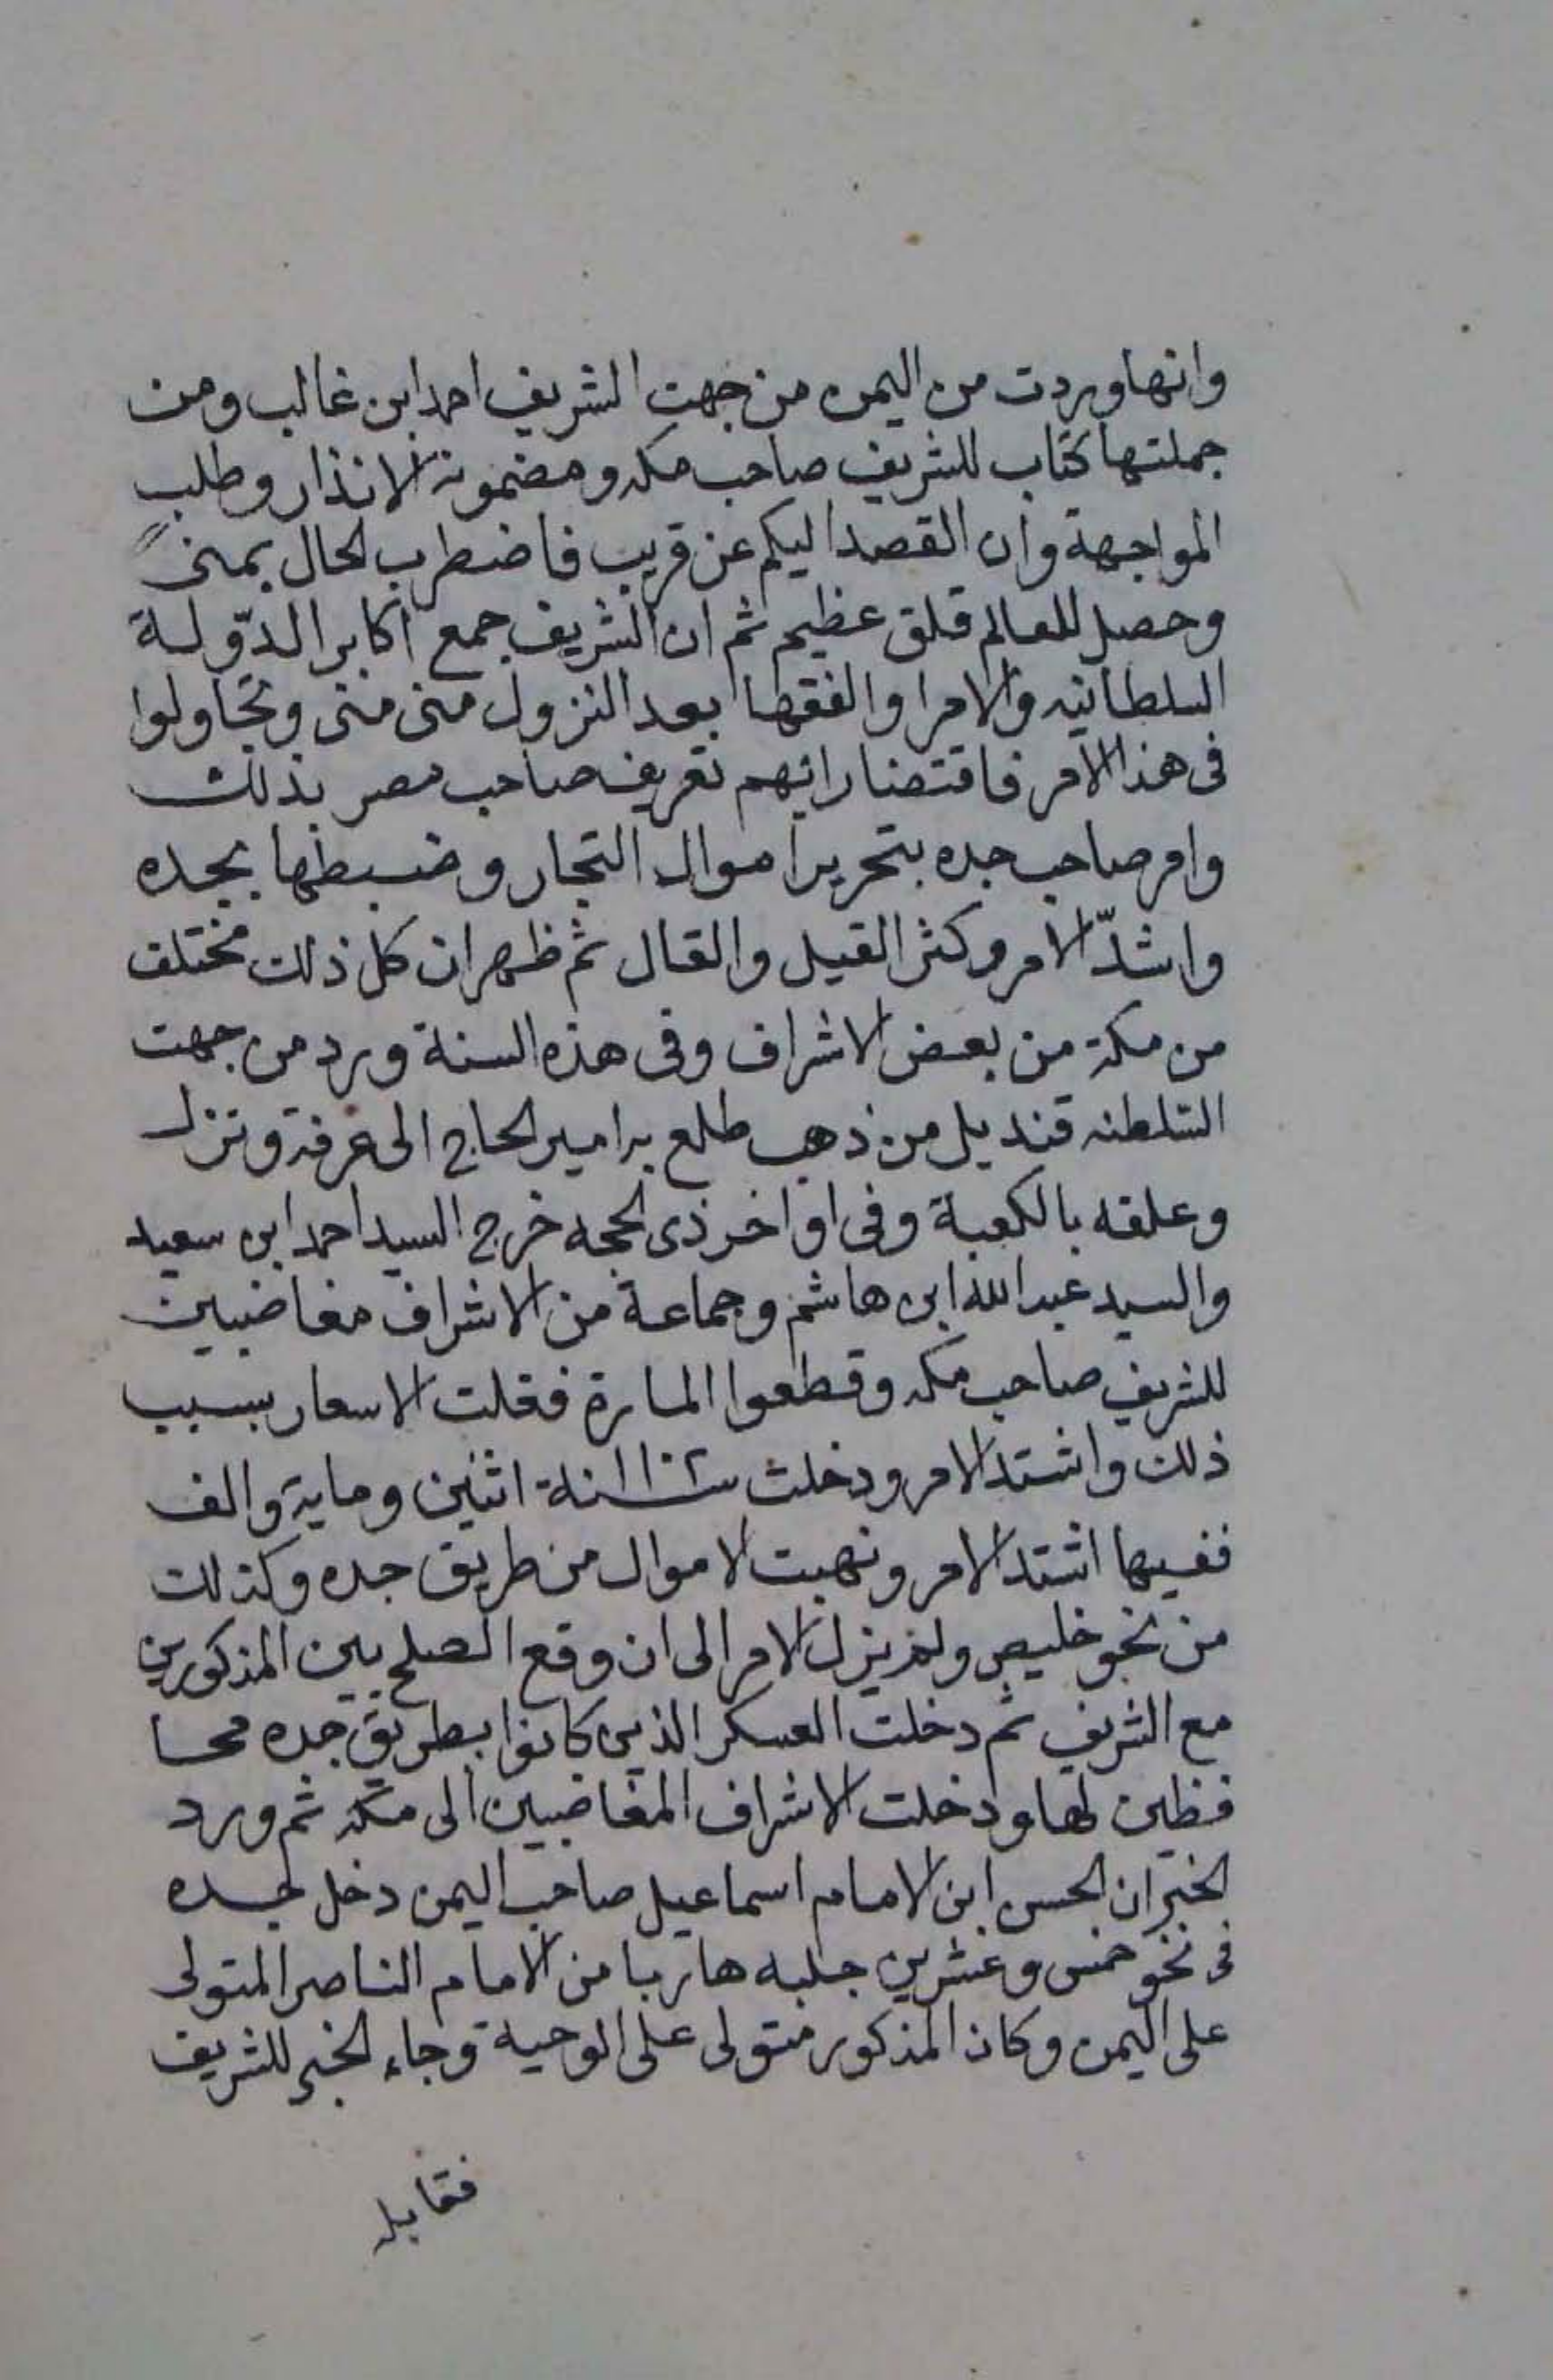 وانها وردت من اليمن من جهت الشريف احمد ابن غالب ومن
جملتها كتاب للشريف صاحب مكه ومضمونه الانذار وطلب
المواجهة وان القصد اليكم عن قريب فاضطرب الحال بمنى
وحصل للعالم قلق عظيم ثم ان الشريف جمع اكابر الدّولة
السلطانيه والامرا والفقها بعد النزول منى منى وتجاولوا
فى هذا الامر فاقتضا رايهم تعريف صاحب مصر بذلك
وامر صاحب جده بتحرير اموال التجار وضبطها بجده
واشدّ الامر وكثر القيل والقال ثم ظهر ان كل ذلك مختلف
من مكة من بعض الاشراف وفى هذه السنة ورد من جهت
السلطنه قنديل من ذهب طلع به امير الحاج الى عرفة ونزل
وعلقه بالكعبة وفى اواخر ذى الحجه خرج السيد احمد ابن سعيد
والسيد عبدالله ابن هاشم وجماعة من الاشراف مغاضبين
للشريف صاحب مكه وقطعوا المارة فغلت الاسعار بسبب
ذلك واشتد الامر ودخلت سنة اثنين وماية والف
ففيها اشتد الامر ونهبت الاموال من طريق جده وكذلك
من نحو خليص ولم يزل الامر الى ان وقع الصلح بين المذكورين
مع الشريف ثم دخلت العسكر الذين كانوا بطريق جده محا
فظين لها ودخلت الاشراف المغاضبين الى مكة ثم ورد
الخبر ان الحسن ابن الامام اسماعيل صاحب اليمن دخل جده
فى نحو خمس وعشرين جلبه هاربا من الامام الناصر المتولى
على اليمن وكان المذكور متولى على الوحية وجاء الخبر للشريف
فقابله